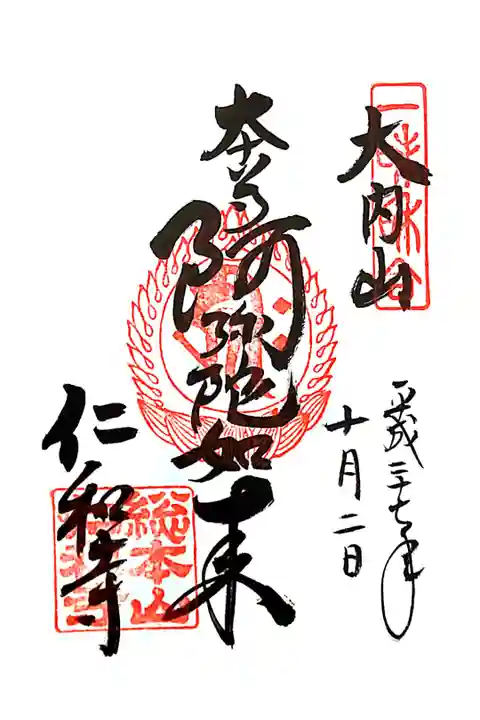 大内山
平成二十七年
十月二日
本尊
阿弥陀如来
仁和寺
総本山